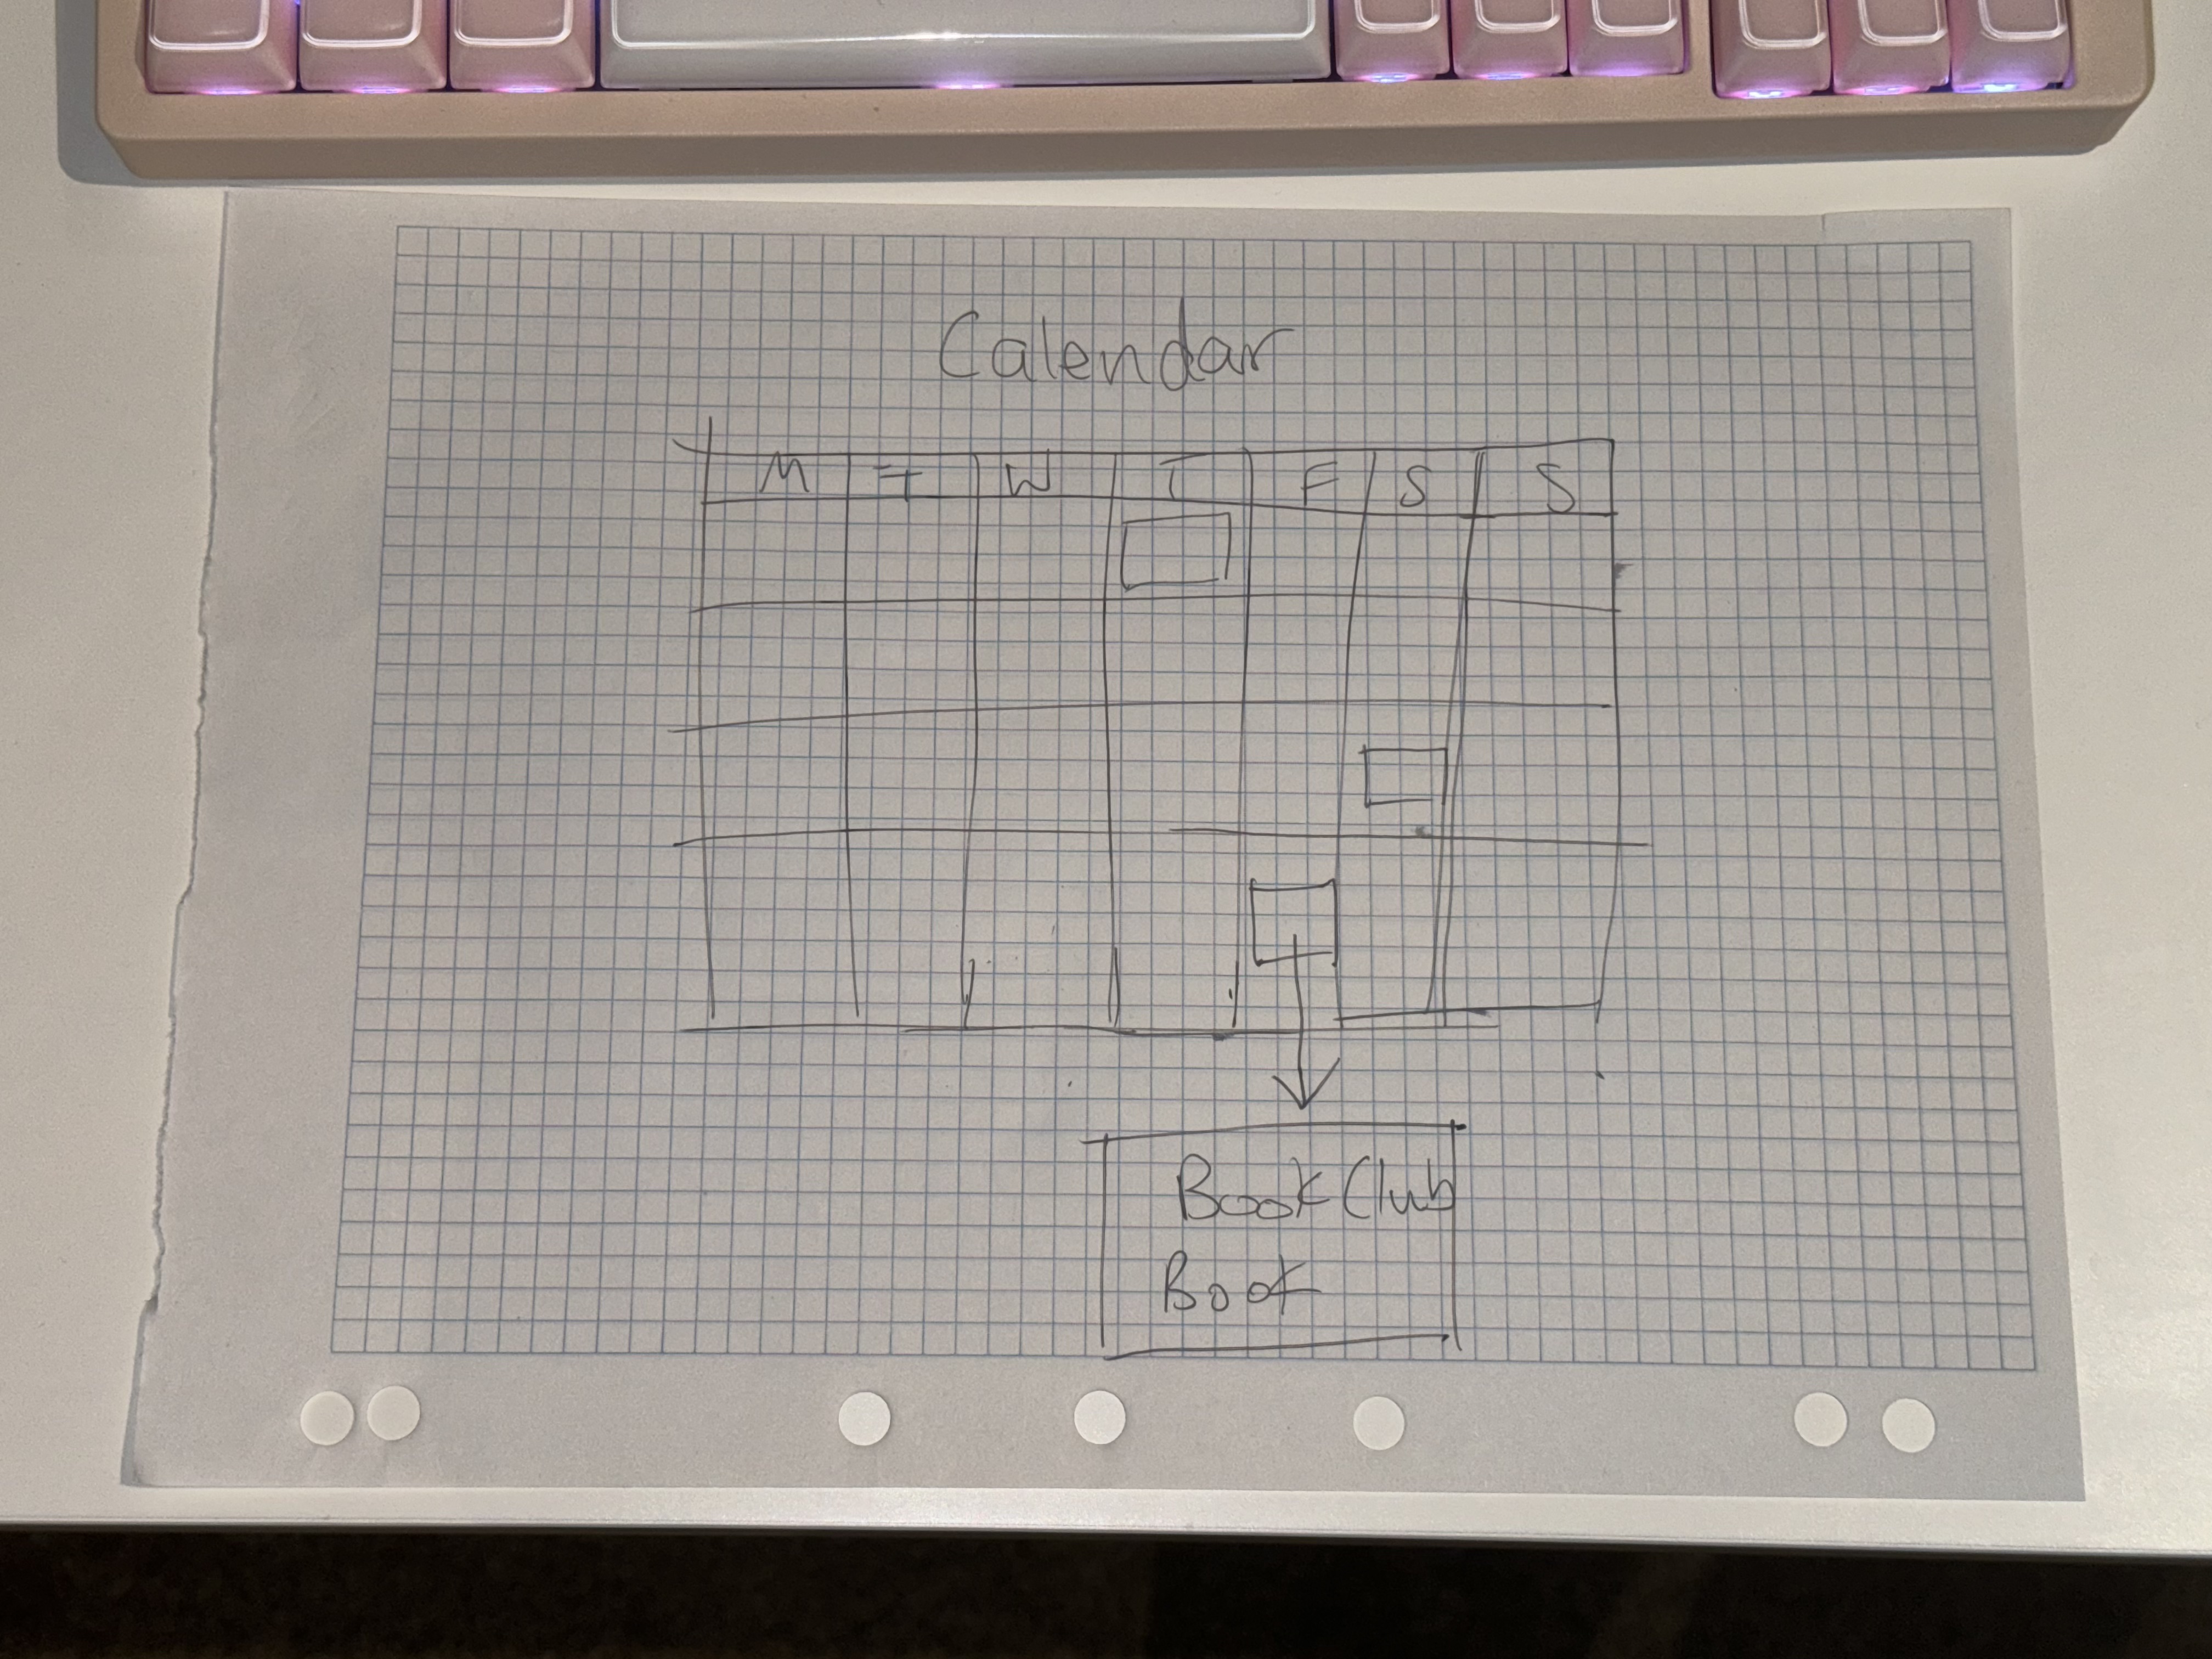 Calendar
M T W T F S S
Book Club
Book